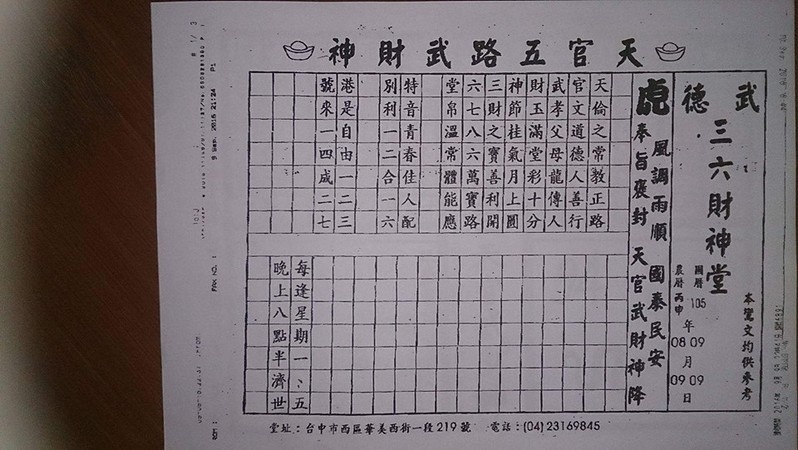 天官五路武財神
武德
三六財神堂
本鸞文均供參考
國曆 105 年 09 月 09 日
農曆 丙申 年 08 月 09 日
虎
風調雨順 國泰民安
奉旨褒封 天官武財神降
天倫之常教正路
官文道德人善行
武孝父母龍傳人
財玉滿堂彩十分
神節桂氣月上圓
三財之寶善利開
六七八六萬寶路
堂帛溫常體能應
特音青春佳人配
別利一二合一六
港是自由一二三
號來一四成二七
每逢星期一、五
晚上八點半濟世
堂址：台中市西區華美西街一段219號 電話：(04)23169845
FAX NO. :
9 Sep. 2016 21:24 P1